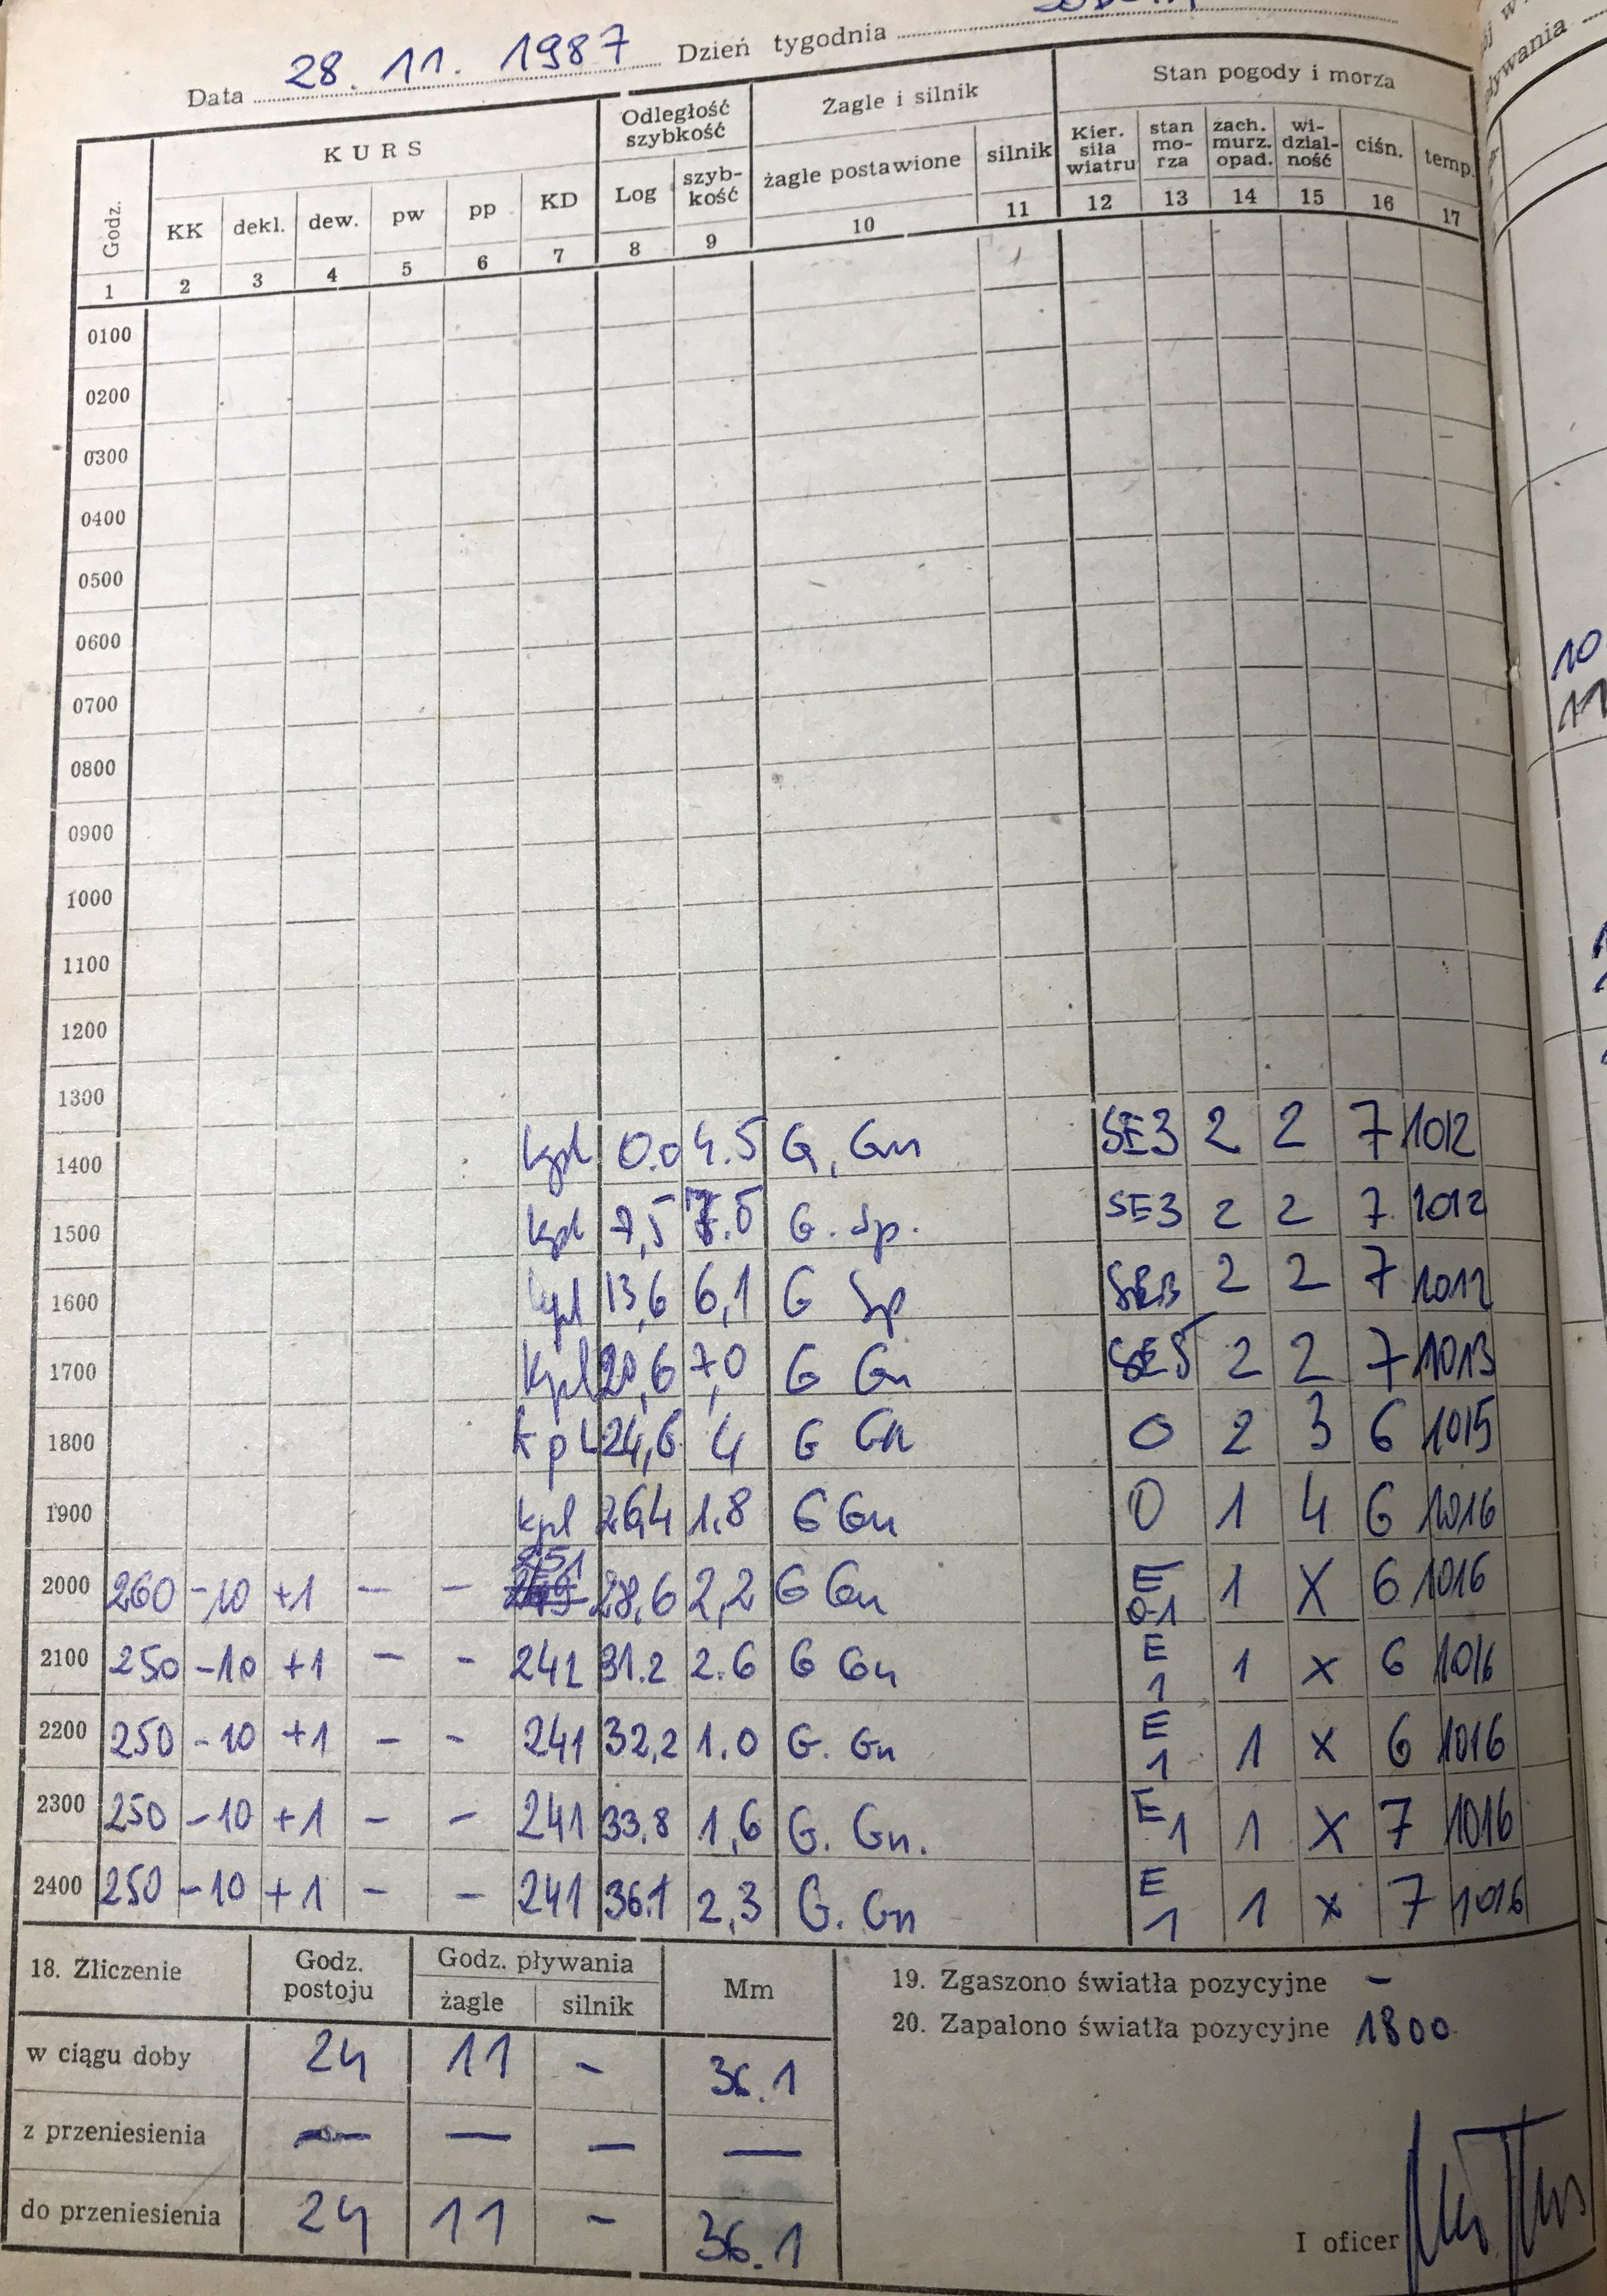 Data 28. 11. 1987 Dzień tygodnia
Godz. KURS Odległość szybkość Żagle i silnik Stan pogody i morza
KK dekl. dew. pw pp KD Log szyb-kość żagle postawione silnik Kier. siła wiatru stan mo-rza zach. murz. opad. wi-dzial-ność ciśn. temp.
1 2 3 4 5 6 7 8 9 10 11 12 13 14 15 16 17
0100
0200
0300
0400
0500
0600
0700
0800
0900
1000
1100
1200
1300
1400 kpl 0.0 4.5 G, Gn SE3 2 2 7 1012
1500 kpl 7,5 7.5 G. Sp. SE3 2 2 7 1012
1600 kpl 13,6 6,1 G Sp SE3 2 2 7 1012
1700 kpl 20,6 7,0 G Gn SE5 2 2 7 1013
1800 kpl 24,6 4 G Gn 0 2 3 6 1015
1900 kpl 26,4 1,8 G Gn 0 1 4 6 1016
2000 260 -10 +1 - - 251 28,6 2,2 G Gn E 0-1 1 X 6 1016
2100 250 -10 +1 - - 241 31.2 2.6 G Gn E 1 1 x 6 1016
2200 250 -10 +1 - - 241 32,2 1.0 G. Gn E 1 1 x 6 1016
2300 250 -10 +1 - - 241 33,8 1,6 G. Gn. E 1 1 X 7 1016
2400 250 -10 +1 - - 241 36.1 2,3 G. Gn E 1 1 x 7 1016
18. Zliczenie Godz. postoju Godz. pływania Mm
żagle silnik
w ciągu doby 24 11 - 36.1
z przeniesienia - - - -
do przeniesienia 24 11 - 36.1
19. Zgaszono światła pozycyjne -
20. Zapalono światła pozycyjne 1800
I oficer
10
11